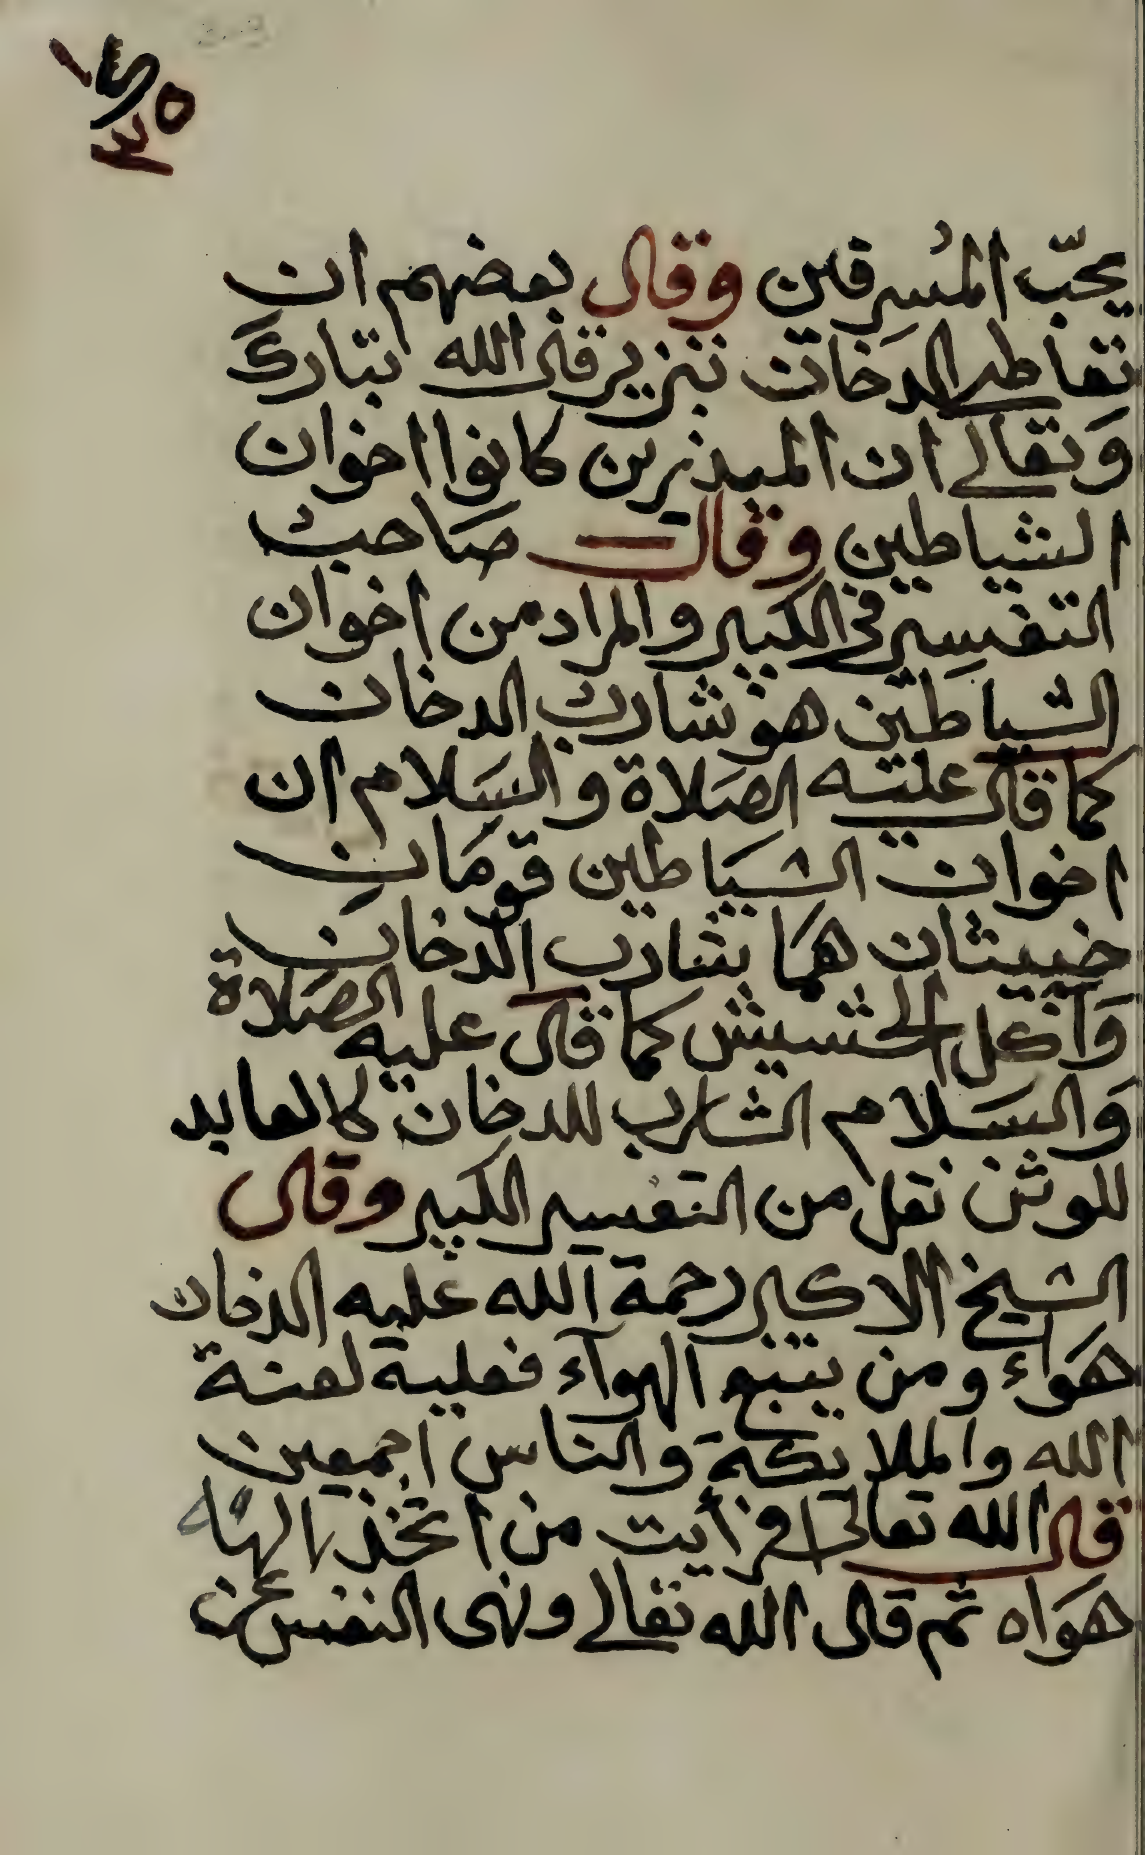 يحبّ المُسرفين وقال بعضهم ان
تعاطي الدخان تبزير قال الله تبارك
وتعالى ان المبذرين كانوا اخوان
الشياطين وقال صاحب
التفسير في الكبير والمراد من اخوان
الشياطين هو شارب الدخان
كما قال عليه الصلاة والسلام ان
اخوان الشياطين قومان
خبيثان هما بشارب الدخان
وآكل الحشيش كما قال عليه الصلاة
والسلام الشارب للدخان كالعابد
للوثن نقل من التفسير الكبير وقال
الشيخ الاكبر رحمة الله عليه الدخان
هواء ومن يتبع الهوآء فعليه لعنة
الله والملائكة والناس اجمعين
قال الله تعالى افرأيت من اتخذ الهه
هواه ثم قال الله تعالى ونهى النفس عن